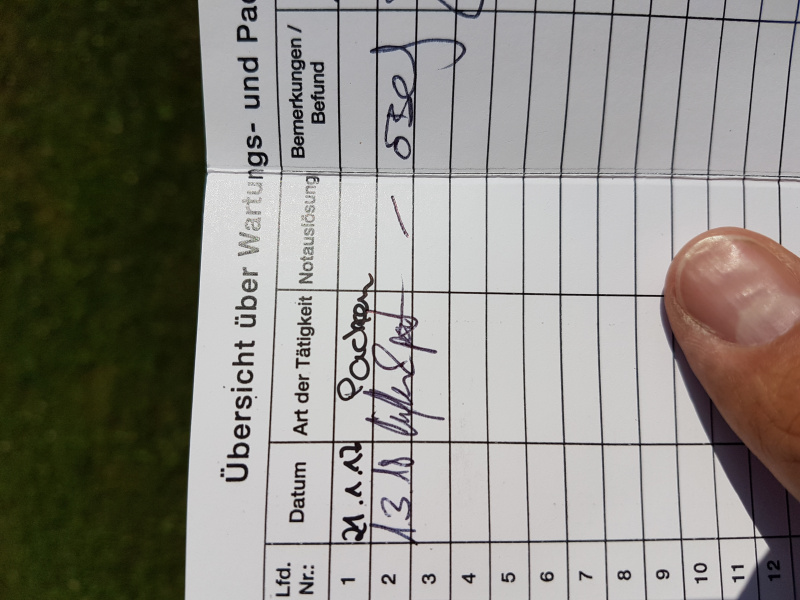 Übersicht über Wartungs- und Pac
Lfd. Nr.: Datum Art der Tätigkeit Notauslösung Bemerkungen / Befund
1 21.1.17 Packen
2 1.3.18 –
3
4
5
6
7
8
9
10
11
12